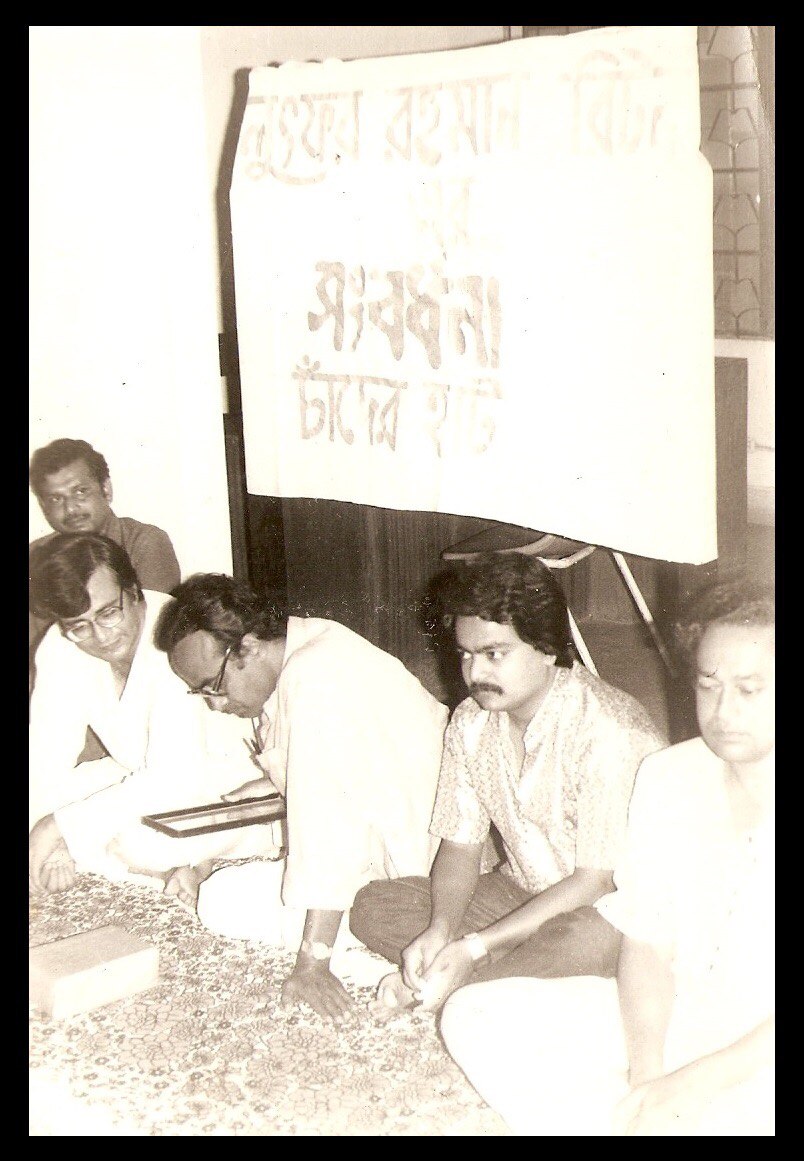 লুৎফর রহমান বিটন
এর
সংবর্ধনা
চাঁদের হাট